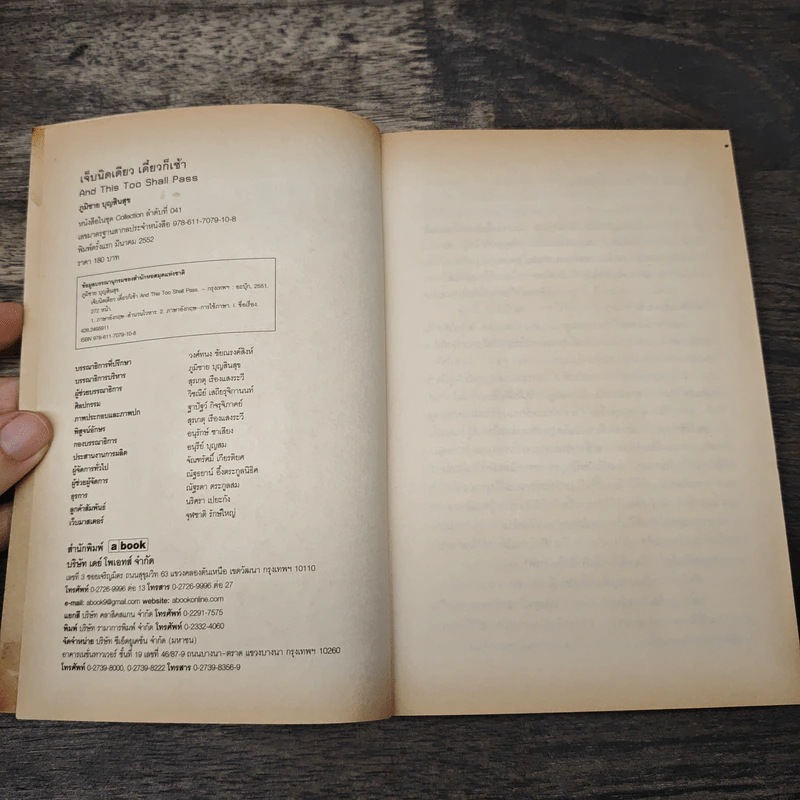 เจ็บนิดเดียว เดี๋ยวก็เช้า
And This Too Shall Pass
ภูมิชาย บุญสินสุข
หนังสือในชุด Collection ลำดับที่ 041
เลขมาตรฐานสากลประจำหนังสือ 978-611-7079-10-8
พิมพ์ครั้งแรก มีนาคม 2552
ราคา 180 บาท
ข้อมูลบรรณานุกรมของสำนักหอสมุดแห่งชาติ
ภูมิชาย บุญสินสุข
เจ็บนิดเดียว เดี๋ยวก็เช้า And This Too Shall Pass. -- กรุงเทพฯ : อะบุ๊ก, 2551.
272 หน้า.
1. ภาษาอังกฤษ--สำนวนโวหาร. 2. ภาษาอังกฤษ--การใช้ภาษา. I. ชื่อเรื่อง.
428.2495911
ISBN 978-611-7079-10-8
บรรณาธิการที่ปรึกษา วงศ์ทนง ชัยณรงค์สิงห์
บรรณาธิการบริหาร ภูมิชาย บุญสินสุข
ผู้ช่วยบรรณาธิการ สุรเกตุ เรืองแสงระวี
ศิลปกรรม วิชณีย์ เสถียรุจิกานนท์
ภาพประกอบและภาพปก ฐาปัฐว์ กิจรุจิภาคย์
พิสูจน์อักษร สุรเกตุ เรืองแสงระวี
กองบรรณาธิการ อนุรักษ์ ชาเสียง
ประสานงานการผลิต อนุรีย์ บุญสม
ผู้จัดการทั่วไป จัณฑรัศมิ์ เกียรติยศ
ผู้ช่วยผู้จัดการ ณัฐธยาน์ อึ้งตระกูลนิธิศ
ธุรการ ณัฐรดา ตระกูลสม
ลูกค้าสัมพันธ์ นริศรา เปยะกัง
เว็บมาสเตอร์ จุฬชาติ รักษ์ใหญ่
สำนักพิมพ์ a book
บริษัท เดย์ โพเอทส์ จำกัด
เลขที่ 3 ซอยเจริญมิตร ถนนสุขุมวิท 63 แขวงคลองตันเหนือ เขตวัฒนา กรุงเทพฯ 10110
โทรศัพท์ 0-2726-9996 ต่อ 13 โทรสาร 0-2726-9996 ต่อ 27
e-mail: abook9@gmail.com website: abookonline.com
แยกสี บริษัท คลาสิคสแกน จำกัด โทรศัพท์ 0-2291-7575
พิมพ์ บริษัท รามาการพิมพ์ จำกัด โทรศัพท์ 0-2332-4060
จัดจำหน่าย บริษัท ซีเอ็ดยูเคชั่น จำกัด (มหาชน)
อาคารเนชั่นทาวเวอร์ ชั้นที่ 19 เลขที่ 46/87-9 ถนนบางนา-ตราด แขวงบางนา กรุงเทพฯ 10260
โทรศัพท์ 0-2739-8000, 0-2739-8222 โทรสาร 0-2739-8356-9